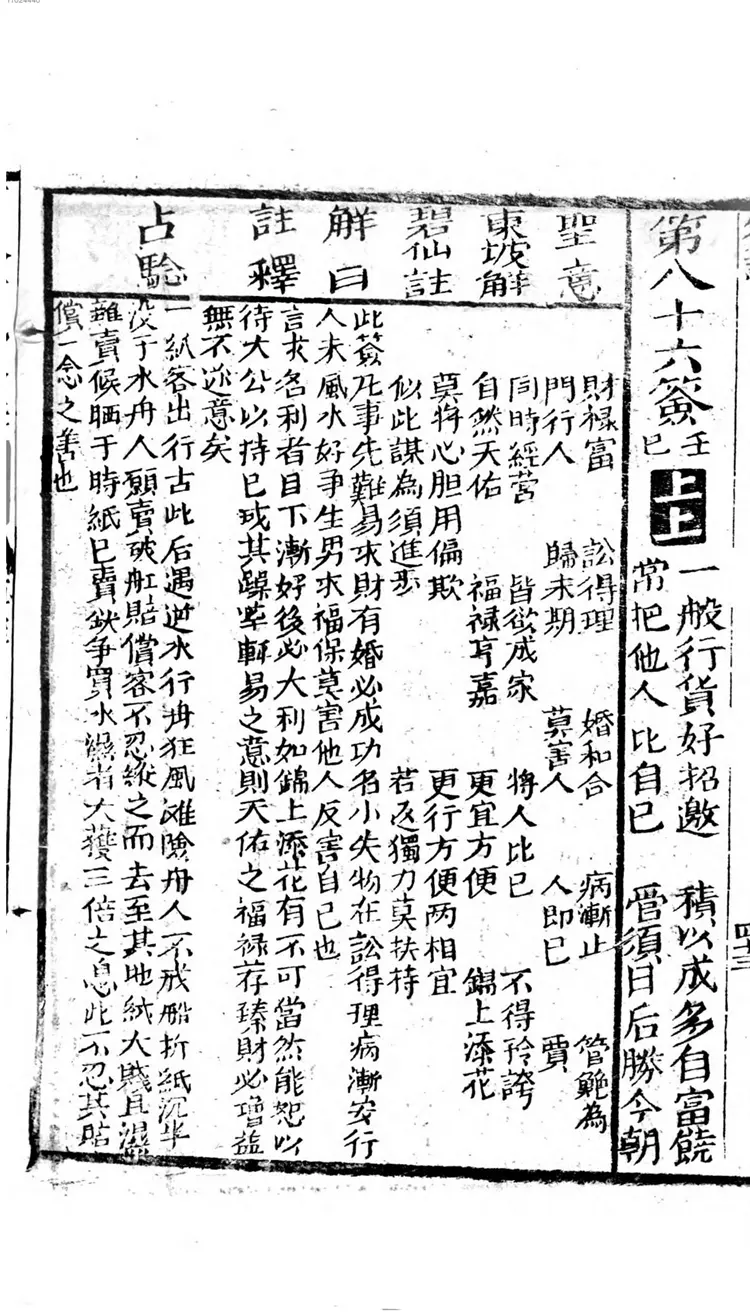 11024440
第八十六簽 壬巳 上上
一般行貨好招邀 積以成多自富饒
常把他人比自已 管須日后勝今朝
四十三
聖意
財祿富 訟得理 婚和合 病漸止 管鮑為
門行人 歸未期 莫害人 人即已 賈
東坡解
同時經营 皆欲成家 將人比已 不得矜誇
自然天佑 福禄亨嘉 更宜方便 錦上添花
碧仙註
莫將心胆用偏欺 更行方便两相宜
似此謀為須進步 若返獨力莫扶持
解曰
此簽凡事先難易求財有婚必成功名小失物在訟得理病漸安行
人未風水好爭生男求福保莫害他人反害自已也
註釋
言求名利者目下漸好後必大利如錦上添花有不可當然能恕以
待大公以持已戒其躁安軒易之意則天佑之福禄荐臻財必增益
無不遂意矣
占驗
一紙客出行占此后遇逆水行舟狂風滩險舟人不戒船折紙沉半
没于水舟人願賣破舡賠償客不忍縱之而去至其地紙大賤且濕
難賣候晒于時紙已賣缺争買水濕者大獲三倍之息此不忍其賠
償一念之善也